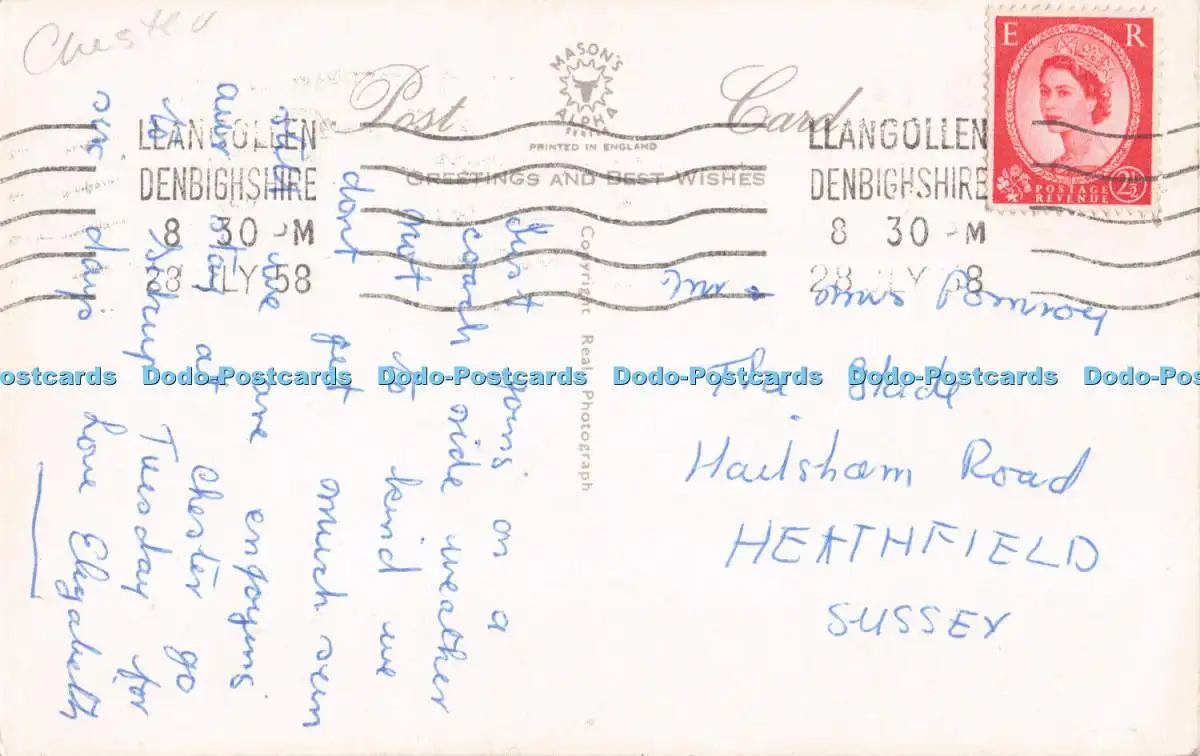 Chester
MASON'S
ALPHA
SERIES
Post Card
PRINTED IN ENGLAND
GREETINGS AND BEST WISHES
E R
POSTAGE
REVENUE
2½D
LLANGOLLEN
DENBIGHSHIRE
8 30 PM
28 JLY 58
LLANGOLLEN
DENBIGHSHIRE
8 30 PM
28 JLY 58
Copyright Real Photograph
Just going on a
coach ride weather
not to kind we
dont get much sun
still we are enjoying
our stay at Chester go
to Tuesday for
six days Love Elizabeth
Mr + Mrs Pomroy
The Slade
Hailsham Road
HEATHFIELD
SUSSEX
Dodo-Postcards Dodo-Postcards Dodo-Postcards Dodo-Postcards Dodo-Postcards Dodo-Pos